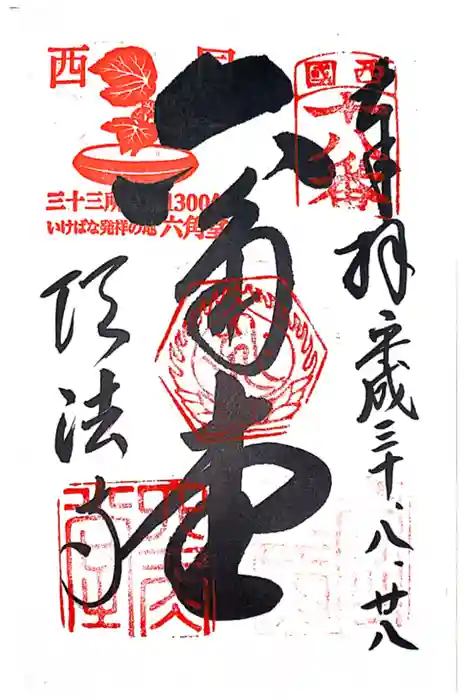 奉拝 平成三十、八、廿八
西國
十八番
六角堂
西国
三十三所
1300
いけばな発祥の地 六角堂
頂法寺